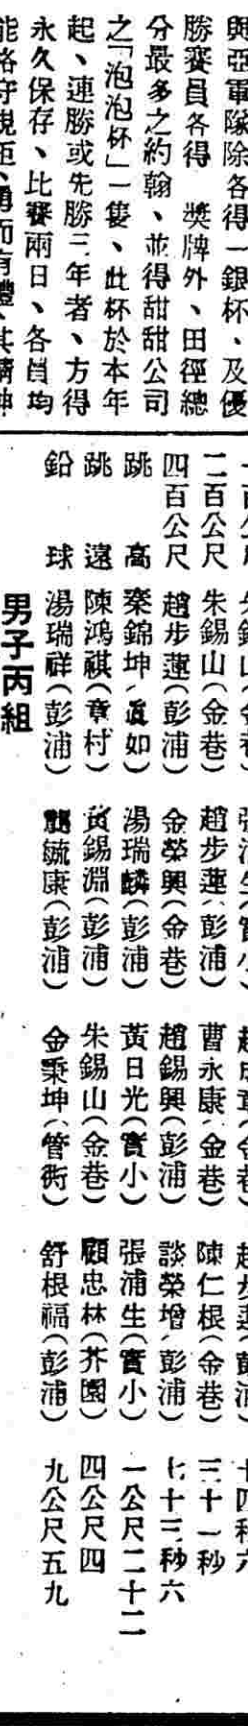 與亞軍隊除各得一銀杯、及優
勝賽員各得 獎牌外、田徑總
分最多之約翰、並得甜甜公司
之「泡泡杯」一隻、此杯於本年
起、連勝或先勝三年者、方得
永久保存、比賽兩日、各員均
能恪守規矩、勇而有禮、其精神
二百公尺 朱錫山(金巷) 趙步蓮(彭浦) 曹永康(金巷) 陳仁根(金巷) 三十一秒
四百公尺 趙步蓮(彭浦) 金榮興(金巷) 趙錫興(彭浦) 談榮增(彭浦) 七十三秒六
跳 高 秦錦坤(真如) 湯瑞麟(彭浦) 黃日光(實小) 張浦生(實小) 一公尺二十二
跳 遠 陳鴻祺(章村) 黃錫淵(彭浦) 朱錫山(金巷) 顧忠林(芥園) 四公尺四
鉛 球 湯瑞祥(彭浦) 毓康(彭浦) 金秉坤(管衖) 舒根福(彭浦) 九公尺五九
男子丙組